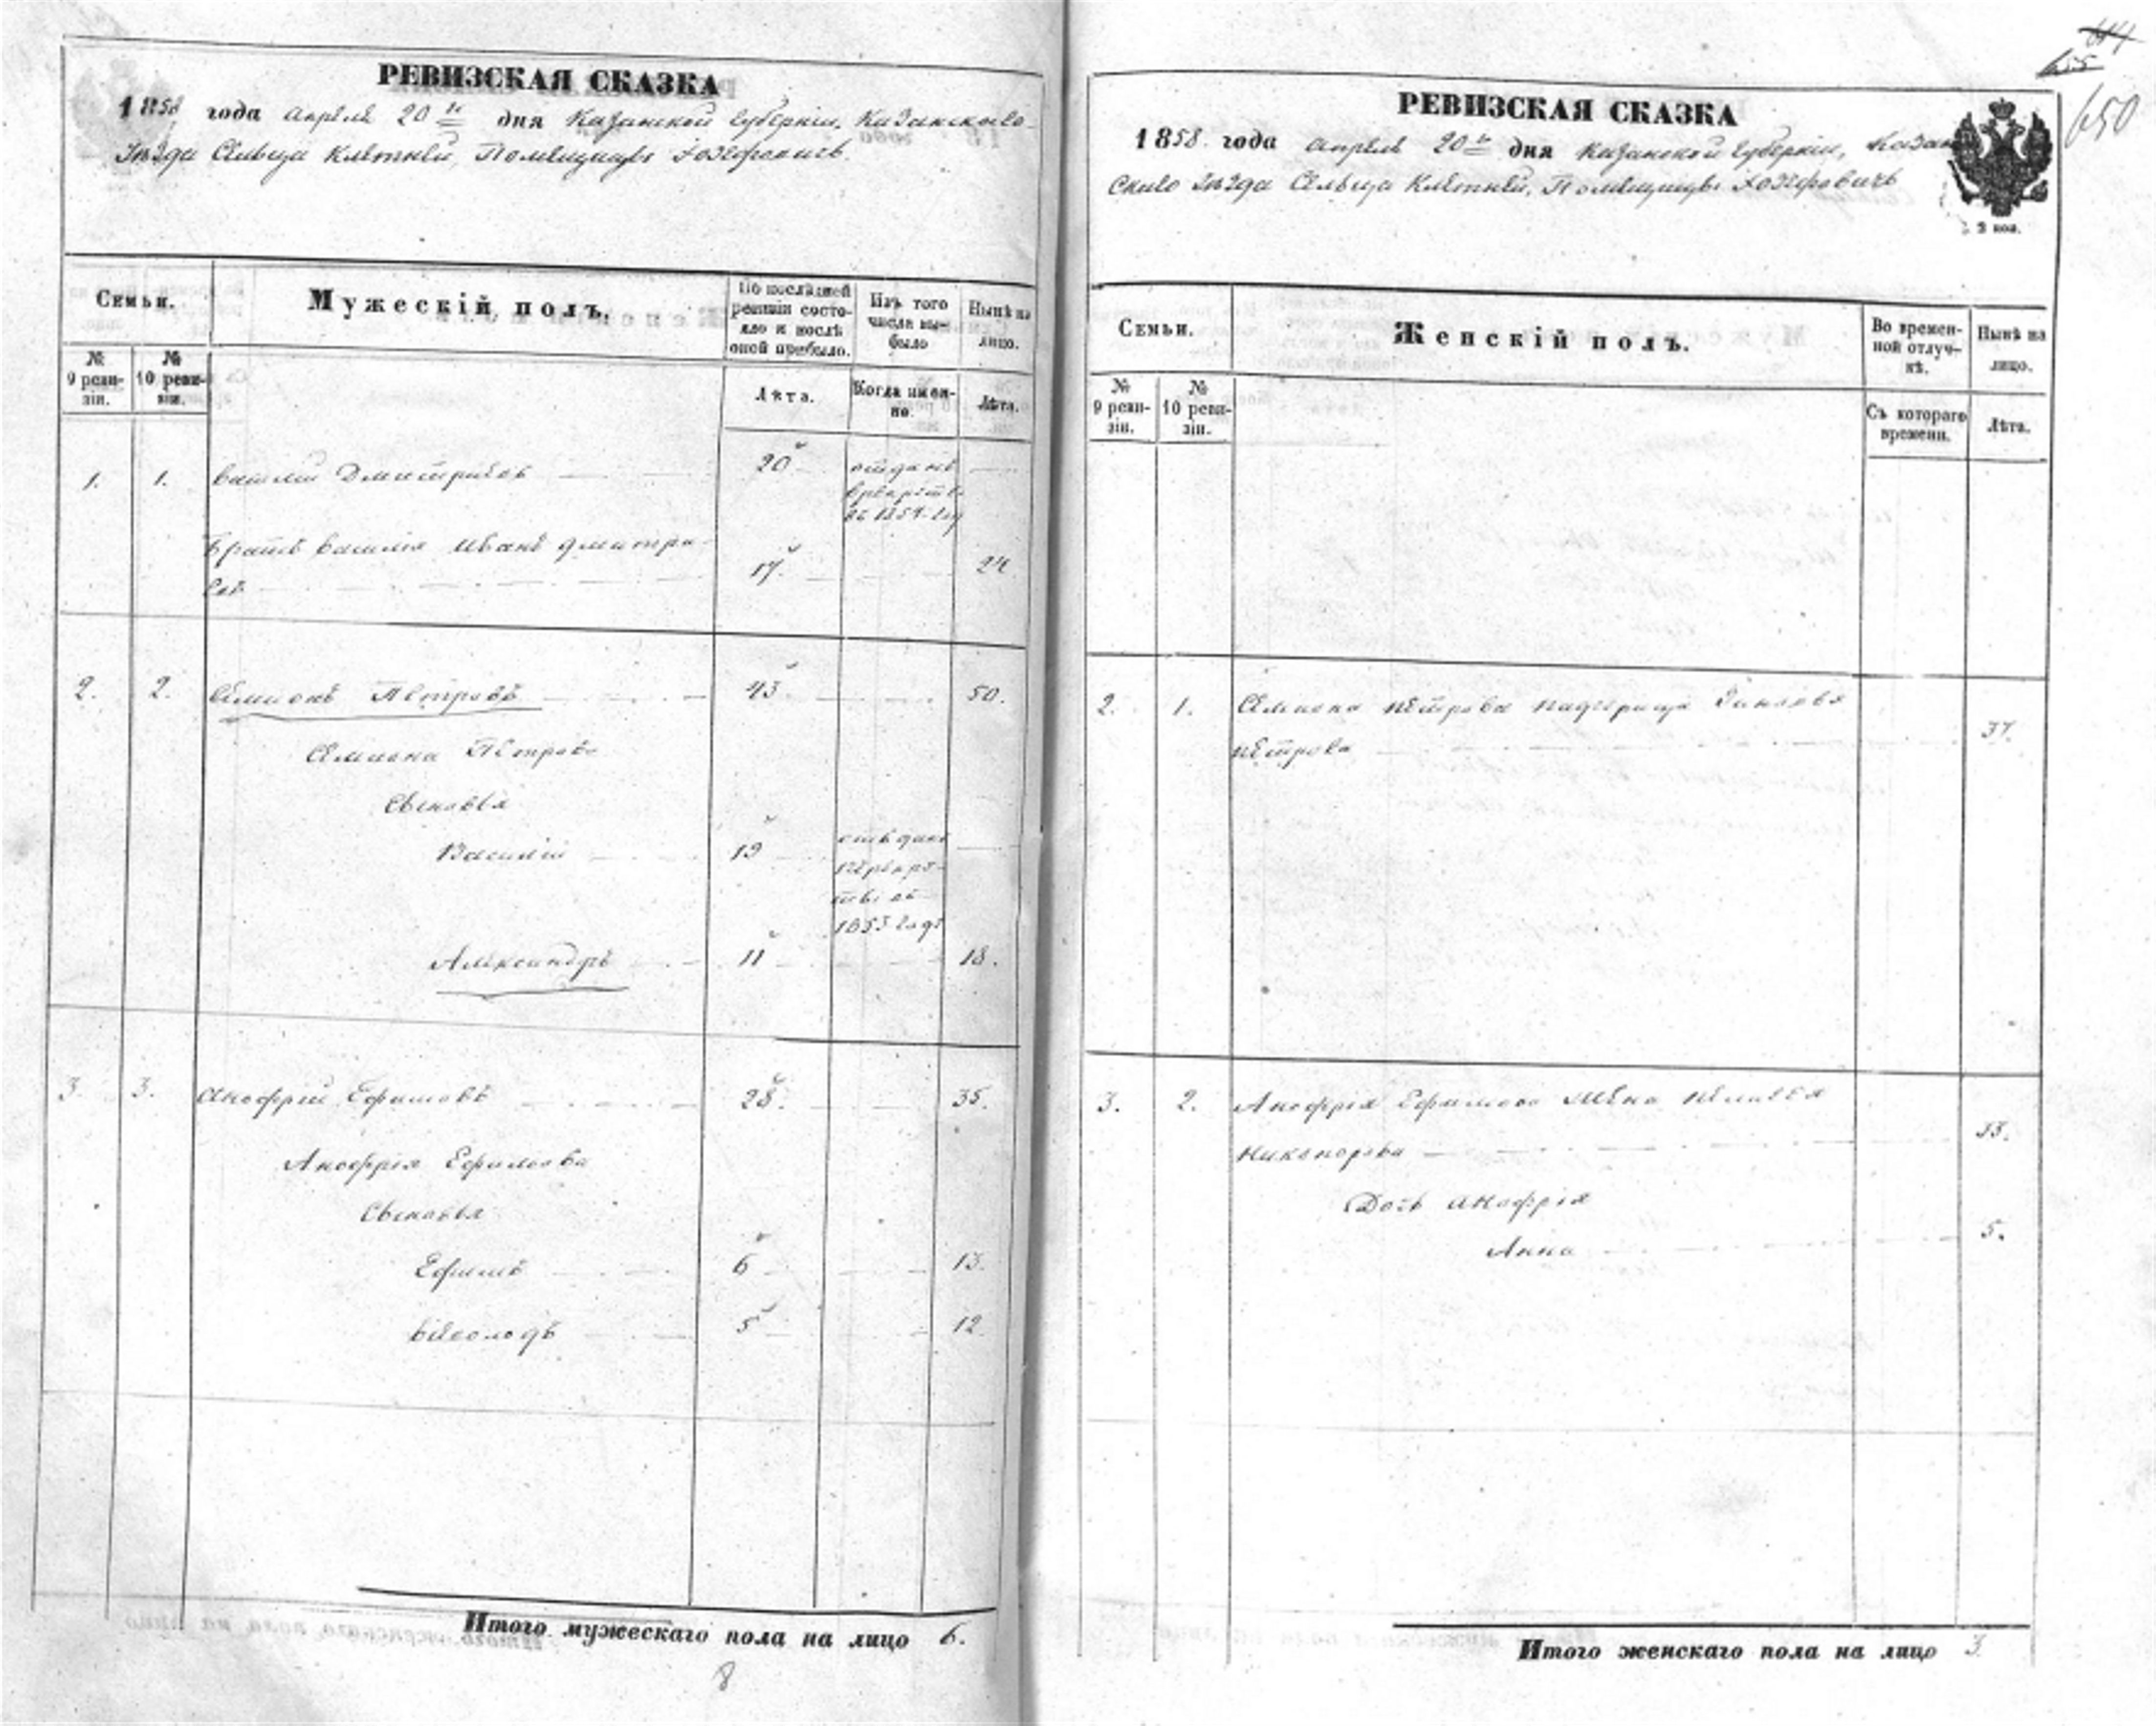 РЕВИЗСКАЯ СКАЗКА
1858 года Апреля 20 дня Казанской Губернии, Казанскаго
Уѣзда Сельца Клетней, Помещицы
Семьи.
Мужескій полъ.
По послѣдней ревизіи состояло и послѣ оной прибыло.
Изъ того числа выбыло
Нынѣ на лицо.
№ 9 ревизіи.
№ 10 ревизіи.
Лѣта.
Когда именно.
Лѣта.
1. 1. Василий Дмитриевъ 20 отданъ
в рекруты
въ 1854 году
Братъ Василія Иванъ Дмитри-
евъ 17. 24
2. 2. Семионъ Петровъ 43. 50.
Семиона Петрова
Сыновья
Василій 19 отъданъ
1853 году
Александръ 11 18.
3. 3. Анофрій Ефимовъ 28. 35.
Анофрія Ефимова
Сыновья
Ефимъ 6 13.
5 12.
Итого мужескаго пола на лицо 6.
8
614
655
650
РЕВИЗСКАЯ СКАЗКА
1858. года Апреля 20 дня Казанской Губернии, Казан
Скаго Уѣзда Сельца Клетней, Помещицы
2 коп.
Семьи.
Женскій полъ.
Во временной отлучкѣ.
Нынѣ на лицо.
№ 9 ревизіи.
№ 10 ревизіи.
Съ котораго времени.
Лѣта.
2. 1. Семиона Петрова падчерица
Петрова 37.
3. 2. Анофрія Ефимова жена
Никонорова 33.
Дочь Анофрія
Анна 5.
Итого женскаго пола на лицо 3